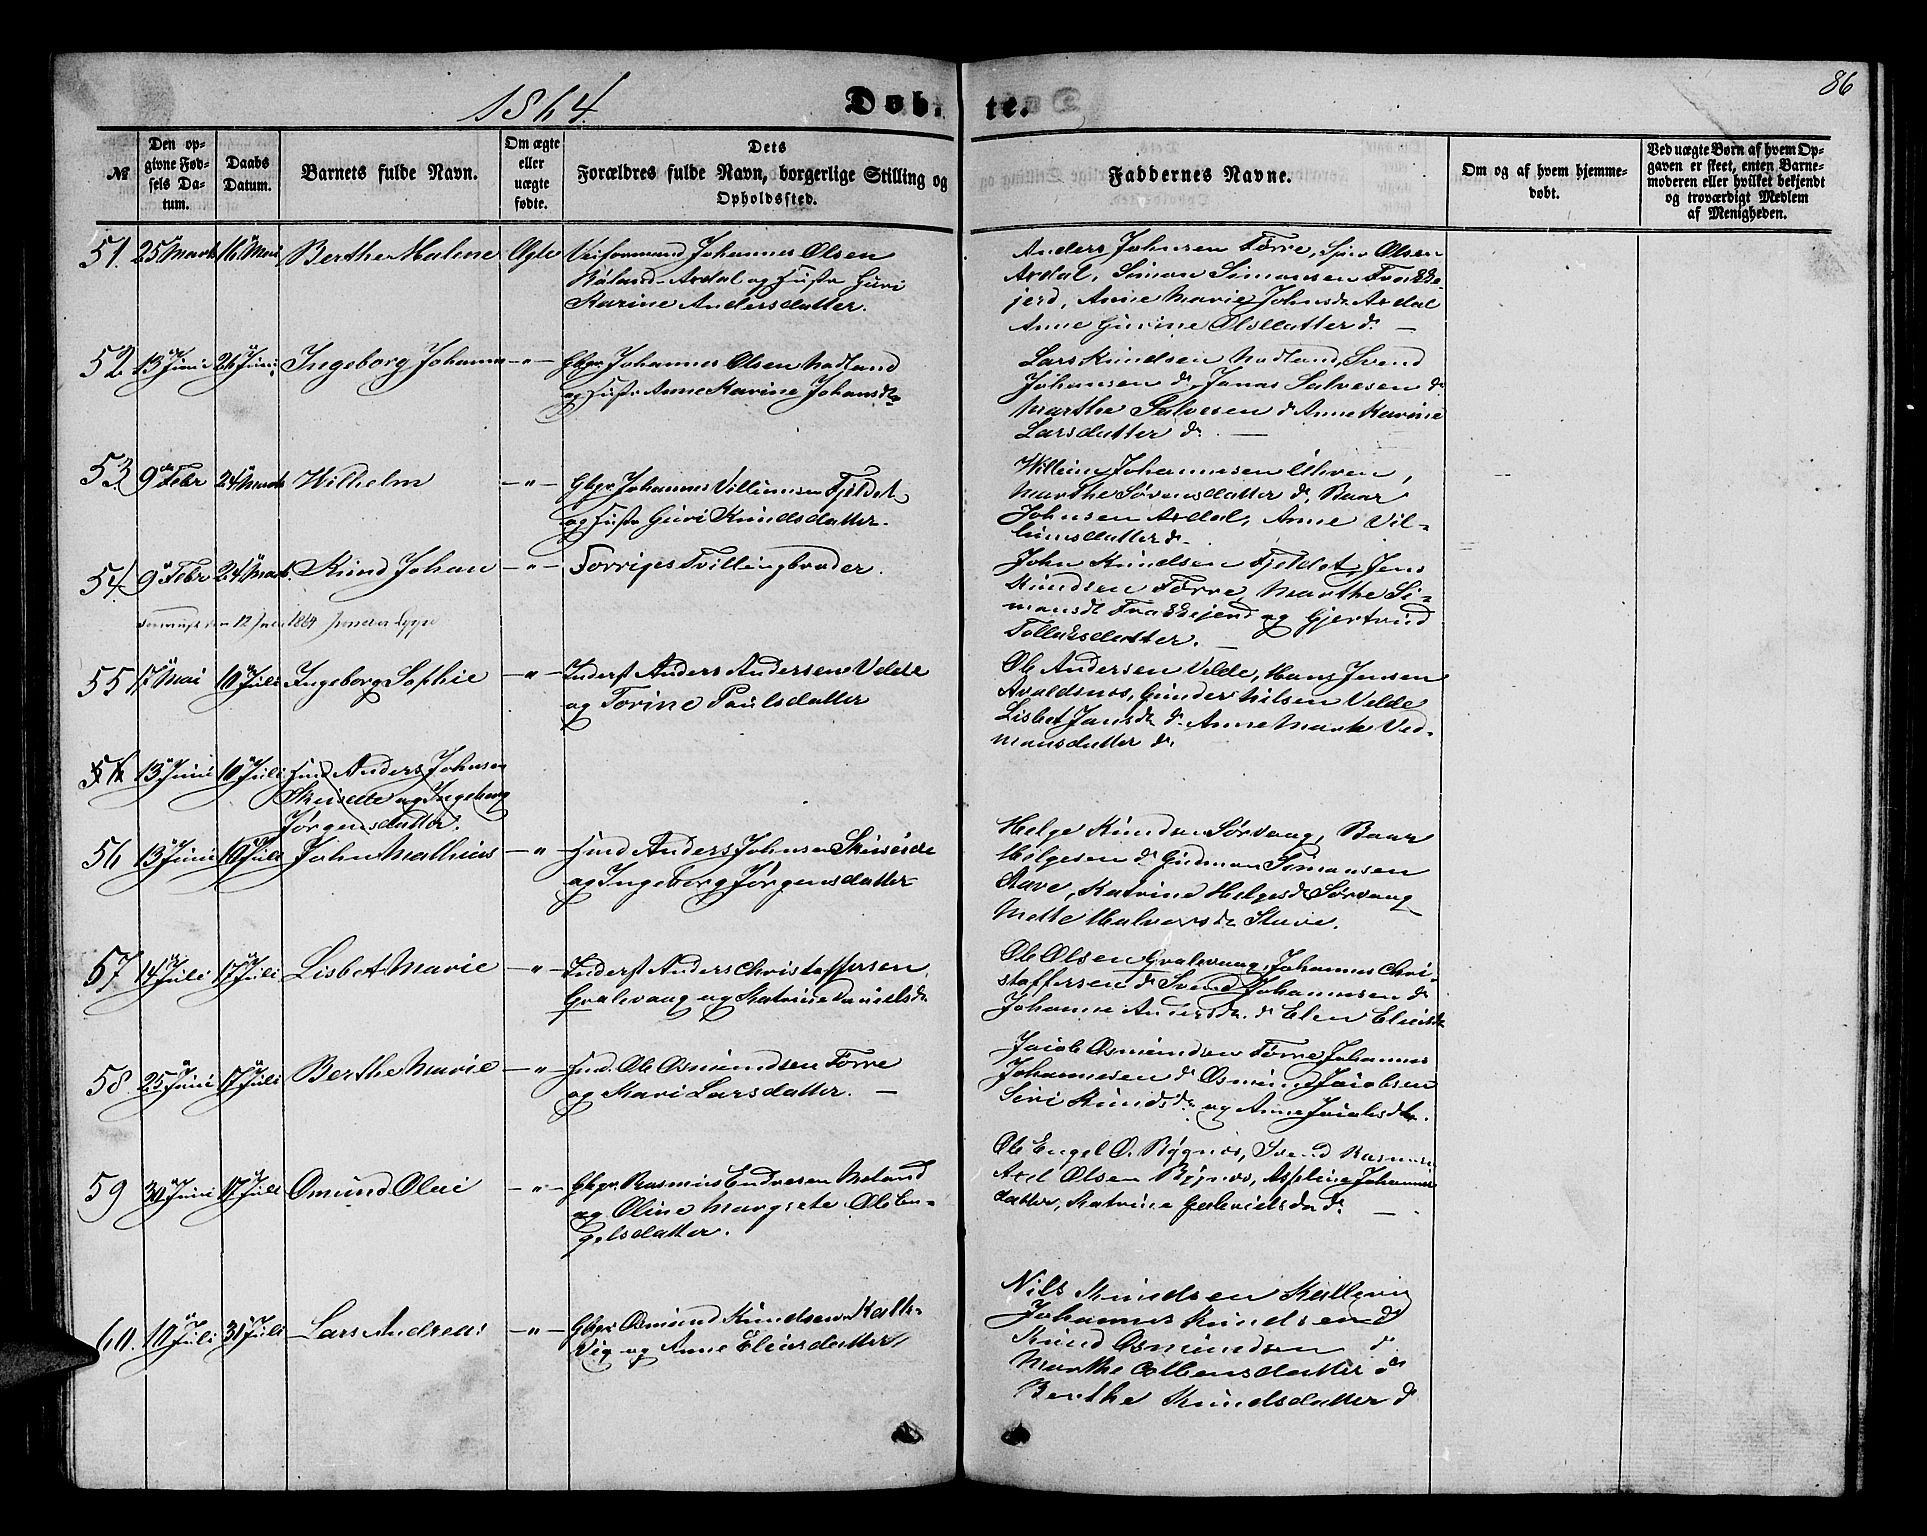 1864. Døb- te. 86
№
Den opgivne Fødsels Datum.
Daabs Datum.
Barnets fulde Navn.
Om ægte eller uægte fødte.
Dets Forældres fulde Navn, borgerlige Stilling og Opholdssted.
Faddernes Navne.
Om og af hvem hjemmedøbt.
Ved uægte Børn af hvem Opgaven er skeet, enten Barnemoderen eller hvilket bekjendt og troværdigt Medlem af Menigheden.
51. 25 Marts 16 Mai Berthe Malene Ægte Johannes Olsen
Røland Avdal og Hustr Guri
Karine Andersdatter.
Anders Johnsen Førre, Olsen
Avdal, Simon Simonsen Frakke-
jerd, Anne Marie Johnsdr Avdal
Anne Gurine Olsdatter do —
52. 13 Juni 26 Juni Ingeborg Johanna —"— Gbgr. Johannes Olsen Nadland
og Hustr Anne Karine Johansdr
Lars Knudsen Nadland, Svend
Johansen do, Jonas Salvesen do
Marthe Salvesen do Anne Karine
Larsdatter do. —
53. 9 Febr 24 Marts Wilhelm —"— Gbgr. Johannes Villumsen Fjeldet
og Hustr Guri Knudsdatter.
Johannesen
Marthe Sørensdatter do, Baar
Johnsen Avdal, Anne Vil-
lumsdatter do
54. 9 Febr 24 Marts. Knud Johan —"— Forriges Tvillingbroder.
12 1864
John Knudsen Fjeldet, Jens
Knudsen Førre, Marthe Si-
monsdt Frakkejerd og Gjertrud
Tollaksdatter. —
55 17 Mai 10 Juli Ingeborg Sophie —"— Inderst Anders Andersen Velde
og Torine Paulsdatter
Ole Andersen Velde, Hans Jensen
Avaldsnes, Gunder Nilsen Velde
Lisbet Jansdr do. Anne Marte Ved-
mansdatter do.
13 Juni 10 Juli Hmd Anders Johnsen
og Ingeborg
Jørgensdatter.
56 13 Juni 10 Juli John Mathias —"— Hmd Anders Johnsen
og Ingeborg Jørgensdatter
Helge Knudsen Sørvaag, Baar
Helgesen do Gudmun Simonsen
Katrine Helgesdr Sørvaag
Mette Halversdr
57 14 Juli 17 Juli Lisbet Marie —"— Inderst Anders Christoffersen
Gralevaag og Katrine Danielsdr
Ole Olsen Gralevaag, Johannes Chri-
stoffersen do Svend Johannesen do
Johanne Andersdr. do Elen Eliasdr
58. 25 Juni 17 Juli Berthe Marie —"— Hmd. Ole Osmundsen Førre
og Kari Larsdatter. —
Jacob Osmundsen Førre Johannes
Johannesen do Osmund Jacobsen
Siri Knudsdr. og Anne Jacobsdtr.
59 30 Juni 17 Juli Omund Olai —"— Gbgr. Rasmus Endresen Meland
og Oline Margrete Ole En-
gelsdatter.
Ole Engel O. Bøgnøs, Svend
Axel Olsen Bøgnøs, Johannes-
datter, Katrine Gabrielsdr do. —
60. 10 Juli 31 Juli Lars Andreas —"— Gbgr Osmund Knudsen Kalle-
vig og Anne Eliasdatter
Nils Knudsen Kallevig
Johannes Knudsen do
Knud Osmundsen do
Marthe datter do
Berthe Knudsdatter do